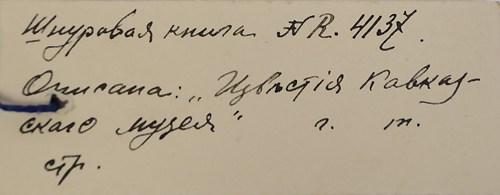 Шнуровая книга № R. 4137.
Описана: „Извѣстія Кавказ-
скаго музея" г. т.
стр.